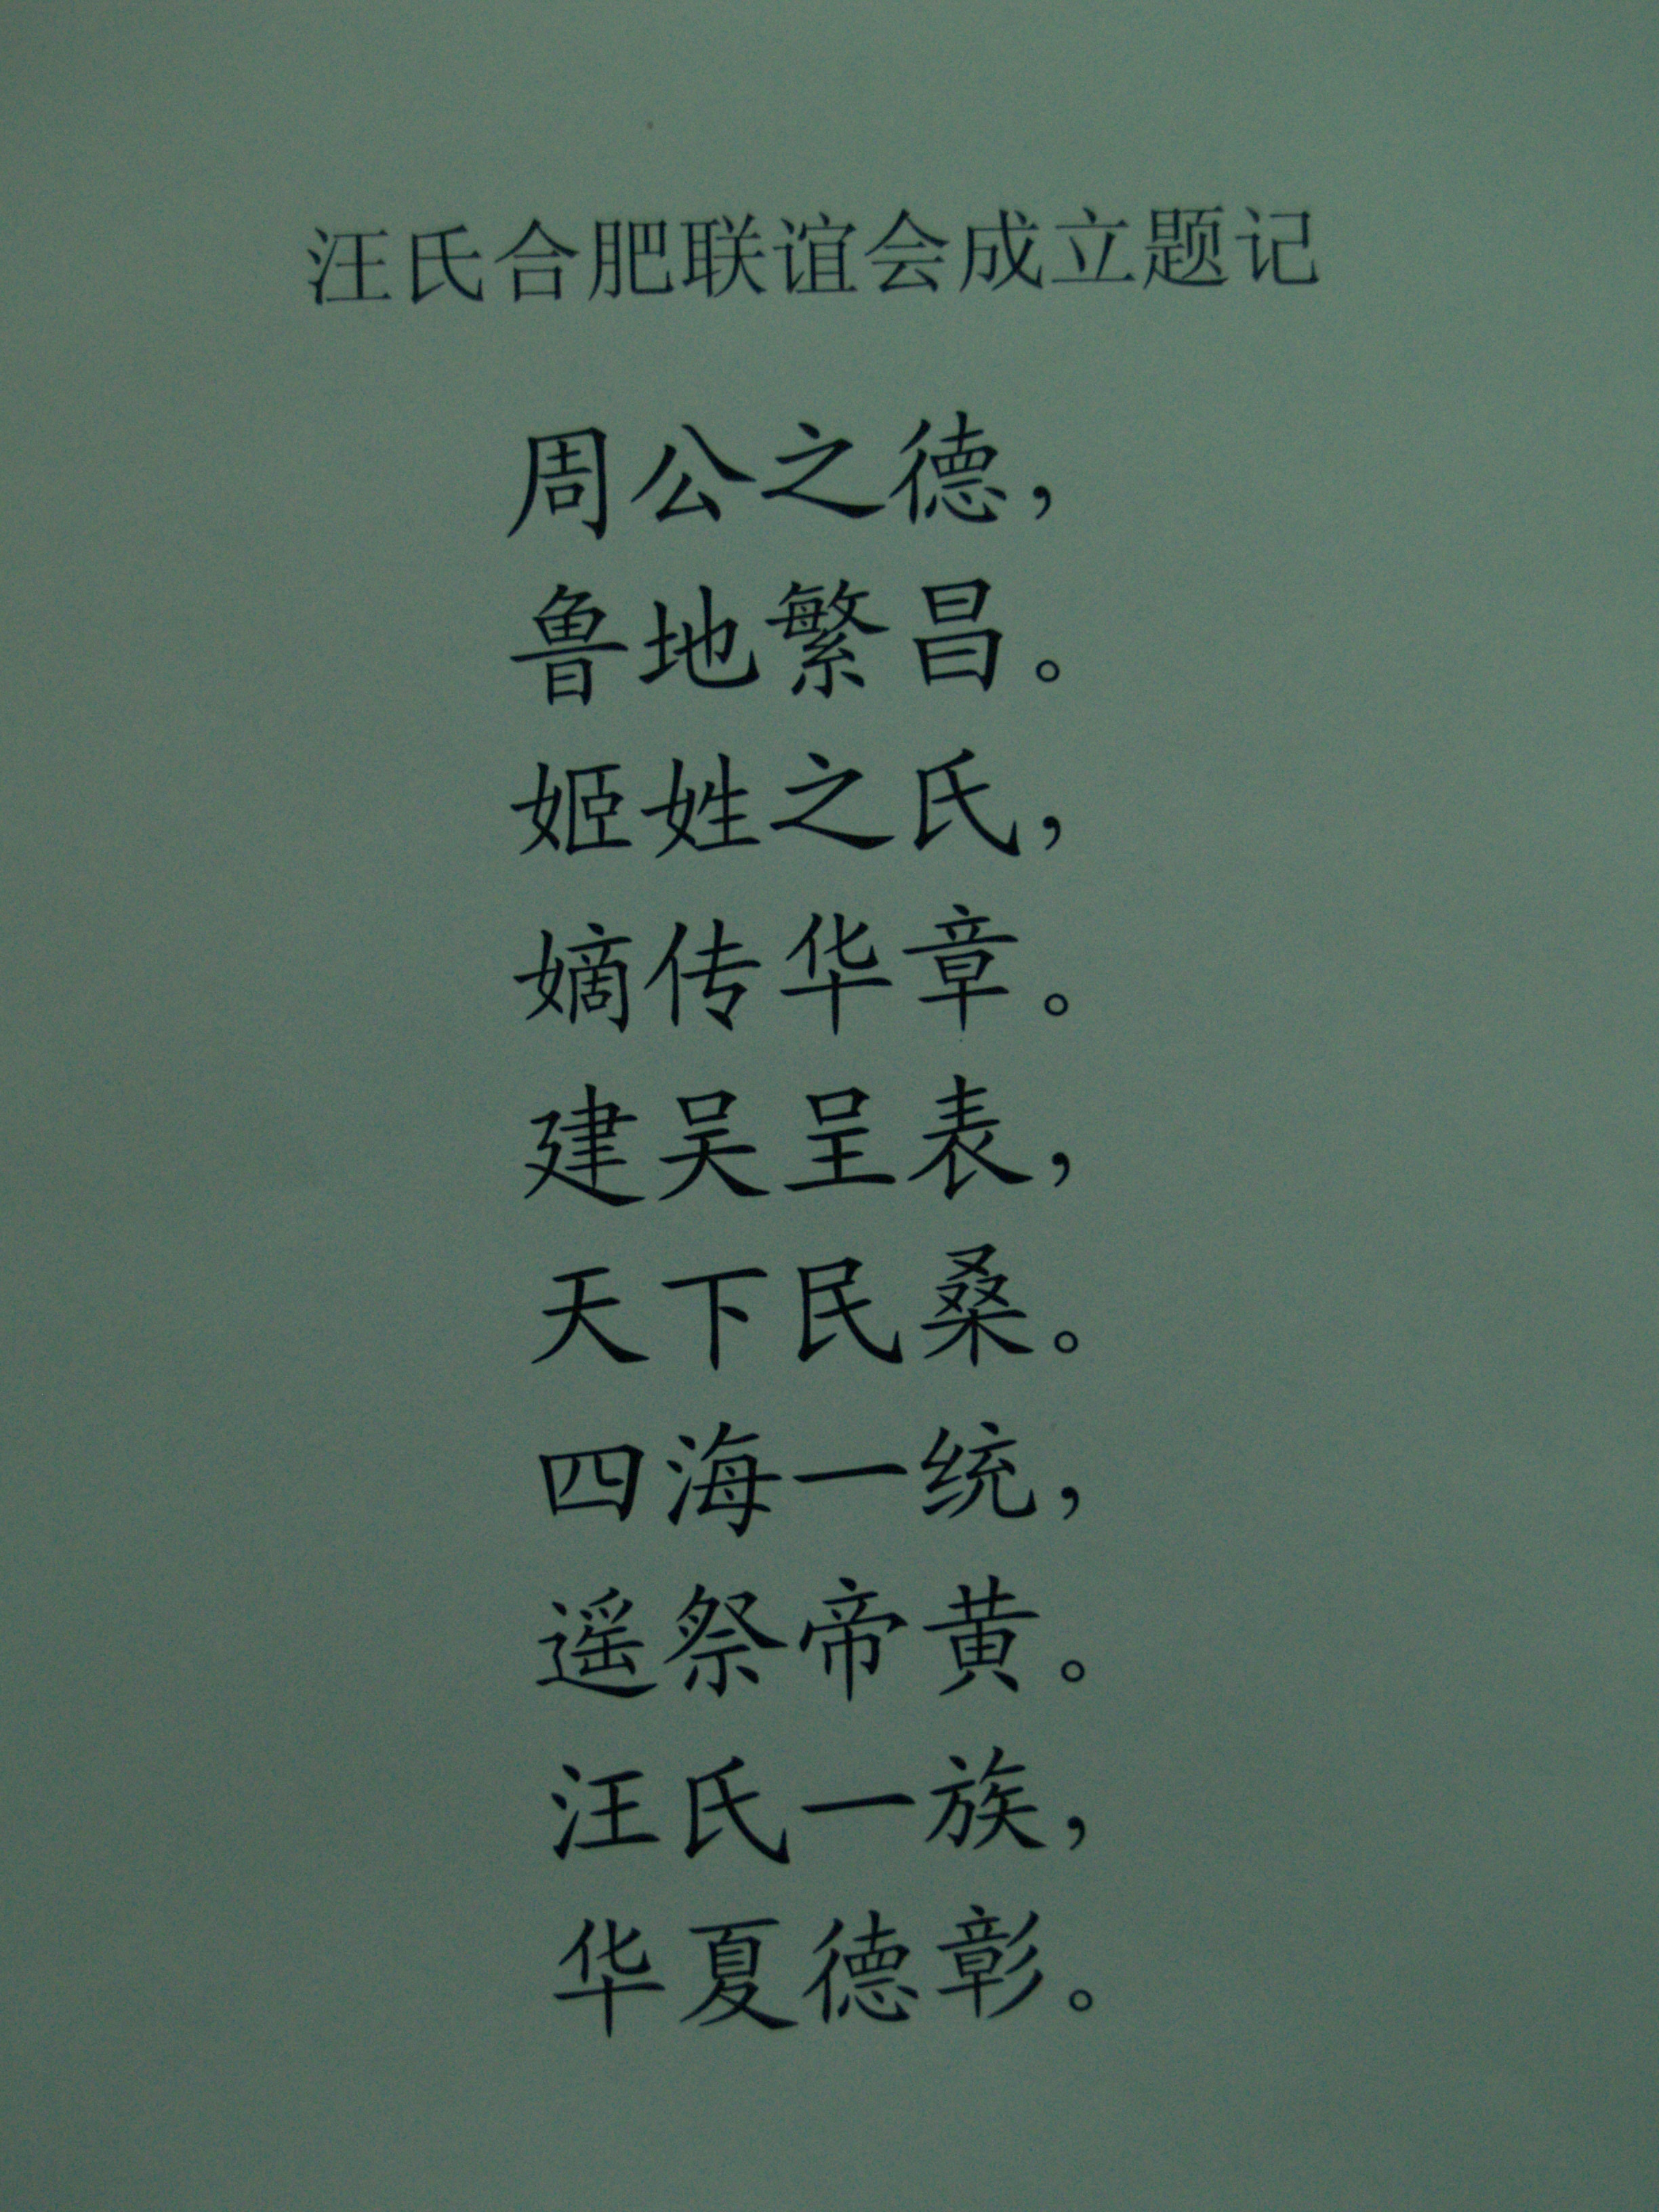 汪氏合肥联谊会成立题记
周公之德，
鲁地繁昌。
姬姓之氏，
嫡传华章。
建吴呈表，
天下民桑。
四海一统，
遥祭帝黄。
汪氏一族，
华夏德彰。